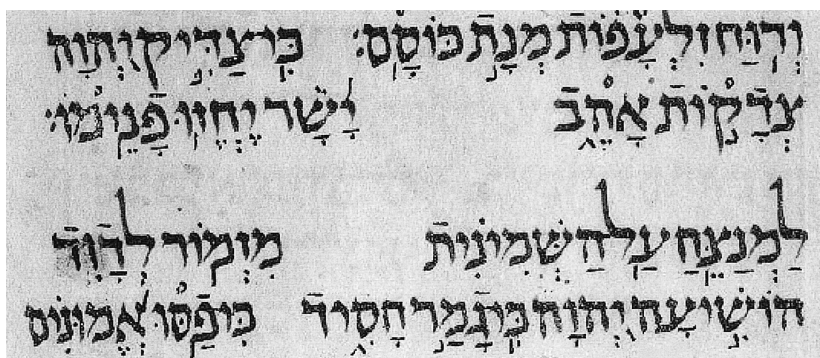 וְר֣וּחַ זִ֭לְעָפוֹת מְנָ֣ת כּוֹסָֽם׃ כִּֽי־צַדִּ֣יק יְ֭הוָה
צְדָק֣וֹת אָהֵ֑ב יָ֝שָׁ֗ר יֶחֱז֥וּ פָנֵֽימוֹ׃
לַמְנַצֵּ֥חַ עַֽל־הַשְּׁמִינִ֗ית מִזְמ֥וֹר לְדָוִֽד
הוֹשִׁ֣יעָה יְ֭הוָה כִּי־גָמַ֣ר חָסִ֑יד כִּי־פַ֥סּוּ אֱ֝מוּנִ֗ים